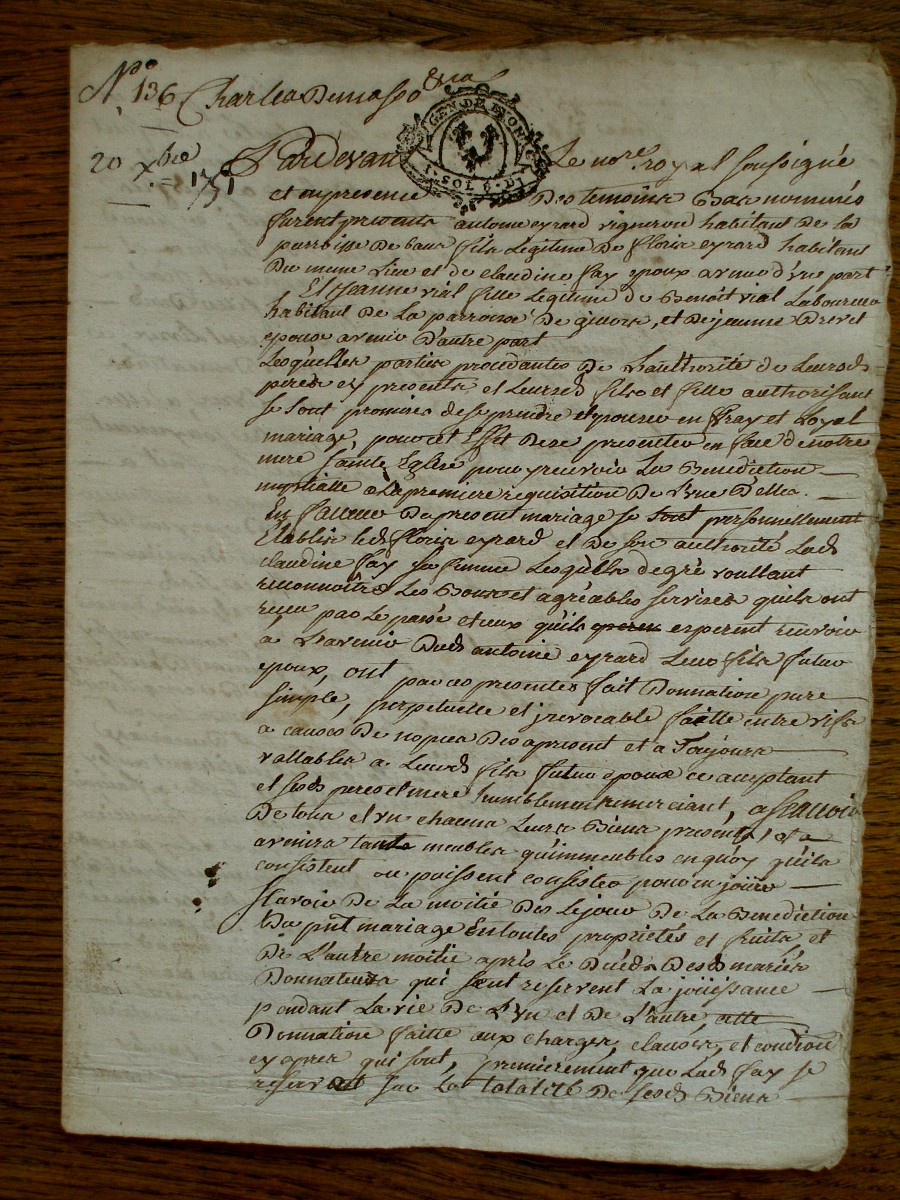 N° 136 Charles Demaspo
20 Xbre 1751
GEN. DE LYON
SOLS
Pardevant Le nore royal soussigné
et en presence Des temoins Bas nommés
furent presents antoine eyrard vigneron habitant De la
parroisse De bans fils Legitime De floris eyrard habitant
Du meme Lieu et de claudine fay epoux avenir d'une part
Et Jeanne vial fille Legitime de Benoit vial Laboureur
habitant De La parroisse De givors, et De jeanne Drevet
epouse avenir D'autre part
Lesquelles parties procédantes De L'authorité de Leursds
peres cy presents et Leursds fils et fille authorisant
se sont promises de se prendre et epouser en vray et Loyal
mariage, pour cet Effet De se presenter en face de notre
mere sainte Eglise pour y recevoir La Benediction
nuptialle a La premiere requisition De L'une D'elles.
En faveur Du present mariage se sont personnellement
Etablis Leds floris eyrard et De son authorité Lads
claudine fay sa femme Lesquels de gré voullant
reconnoître Les Bons et agréables services quils ont
reçu par Le passé et ceux quils esperent recevoir
a L'avenir Duds antoine eyrard Leur fils futur
epoux, ont par ces presentes fait Donnation pure
simple, perpetuelle et irevocable faitte entre vifs
a cause De nopces Des apresent et a Toujours
vallables a Leurds fils futur epoux ce acceptant
et sesds pere et mere humblement remerciant, a Sçavoir
De tous et un chacun Leurs Biens présents, et a
avenirs tant meubles qu'immeubles en quoy qu'ils
consistent ou puissent consister pour en joüir
Scavoir De La moitié Des Le jour De La Benediction
Du pnt mariage En toutes propriétés et fruits et
De L'autre moitié aprés Le Décéds Desds mariés
Donnateurs qui s'en reservent La joüissance
pendant La vie De L'un et De L'autre cette
Donnation faitte aux charges, clauses, et condions
cy aprés qui sont, premierement que Lads fay se
reserve sur La totalité De sesds Biens